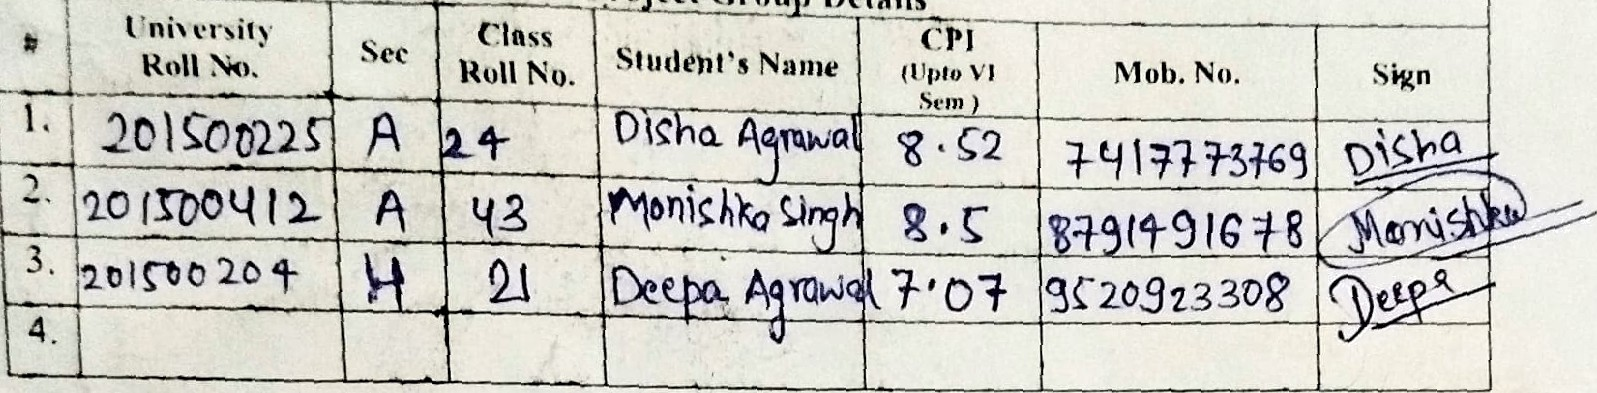 Project Group Details
# University Roll No. Sec Class Roll No. Student's Name CPI (Upto VI Sem ) Mob. No. Sign
1. 201500225 A 24 Disha Agrawal 8.52 7417773769 Disha
2. 201500412 A 43 Monishka Singh 8.5 8791491678 Monishka
3. 201500204 H 21 Deepa Agrawal 7.07 9520923308 Deepa
4.